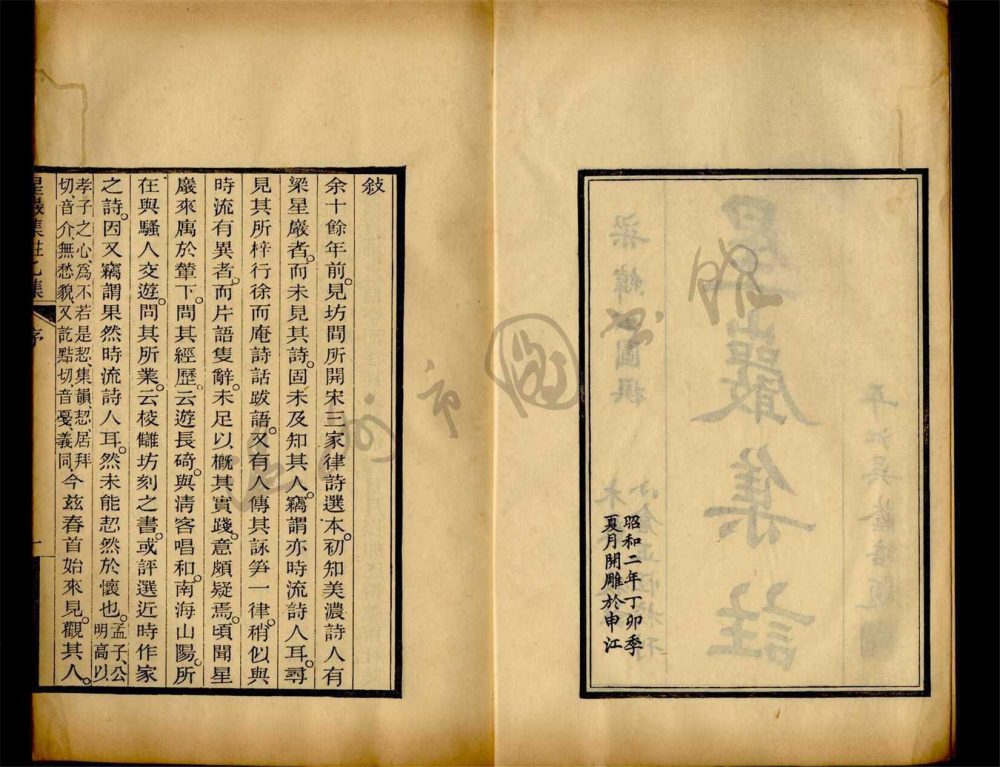 昭和二年丁卯季
夏月開雕於申江
敍
余十餘年前。見坊間所開宋三家律詩選本。初知美濃詩人有
梁星巖者。而未見其詩。固未及知其人。竊謂亦時流詩人耳。尋
見其所梓行徐而庵詩話跋語。又有人傳其詠笋一律。稍似與
時流有異者。而片語隻辭。未足以槪其實踐。意頗疑焉。頃聞星
巖來寓於輦下。問其經歷。云遊長碕。與淸客唱和。南海山陽。所
在與騷人交遊。問其所業。云棱讎坊刻之書。或評選近時作家
之詩。因又竊謂果然時流詩人耳。然未能恝然於懷也。孟子、公明高以
孝子之心、爲不若是恝、集韻、恝、居拜切、音介、無愁貌、又訖黠切、音戞、義同、今玆春首始來見。觀其人。
星巖集註乙集
序
一